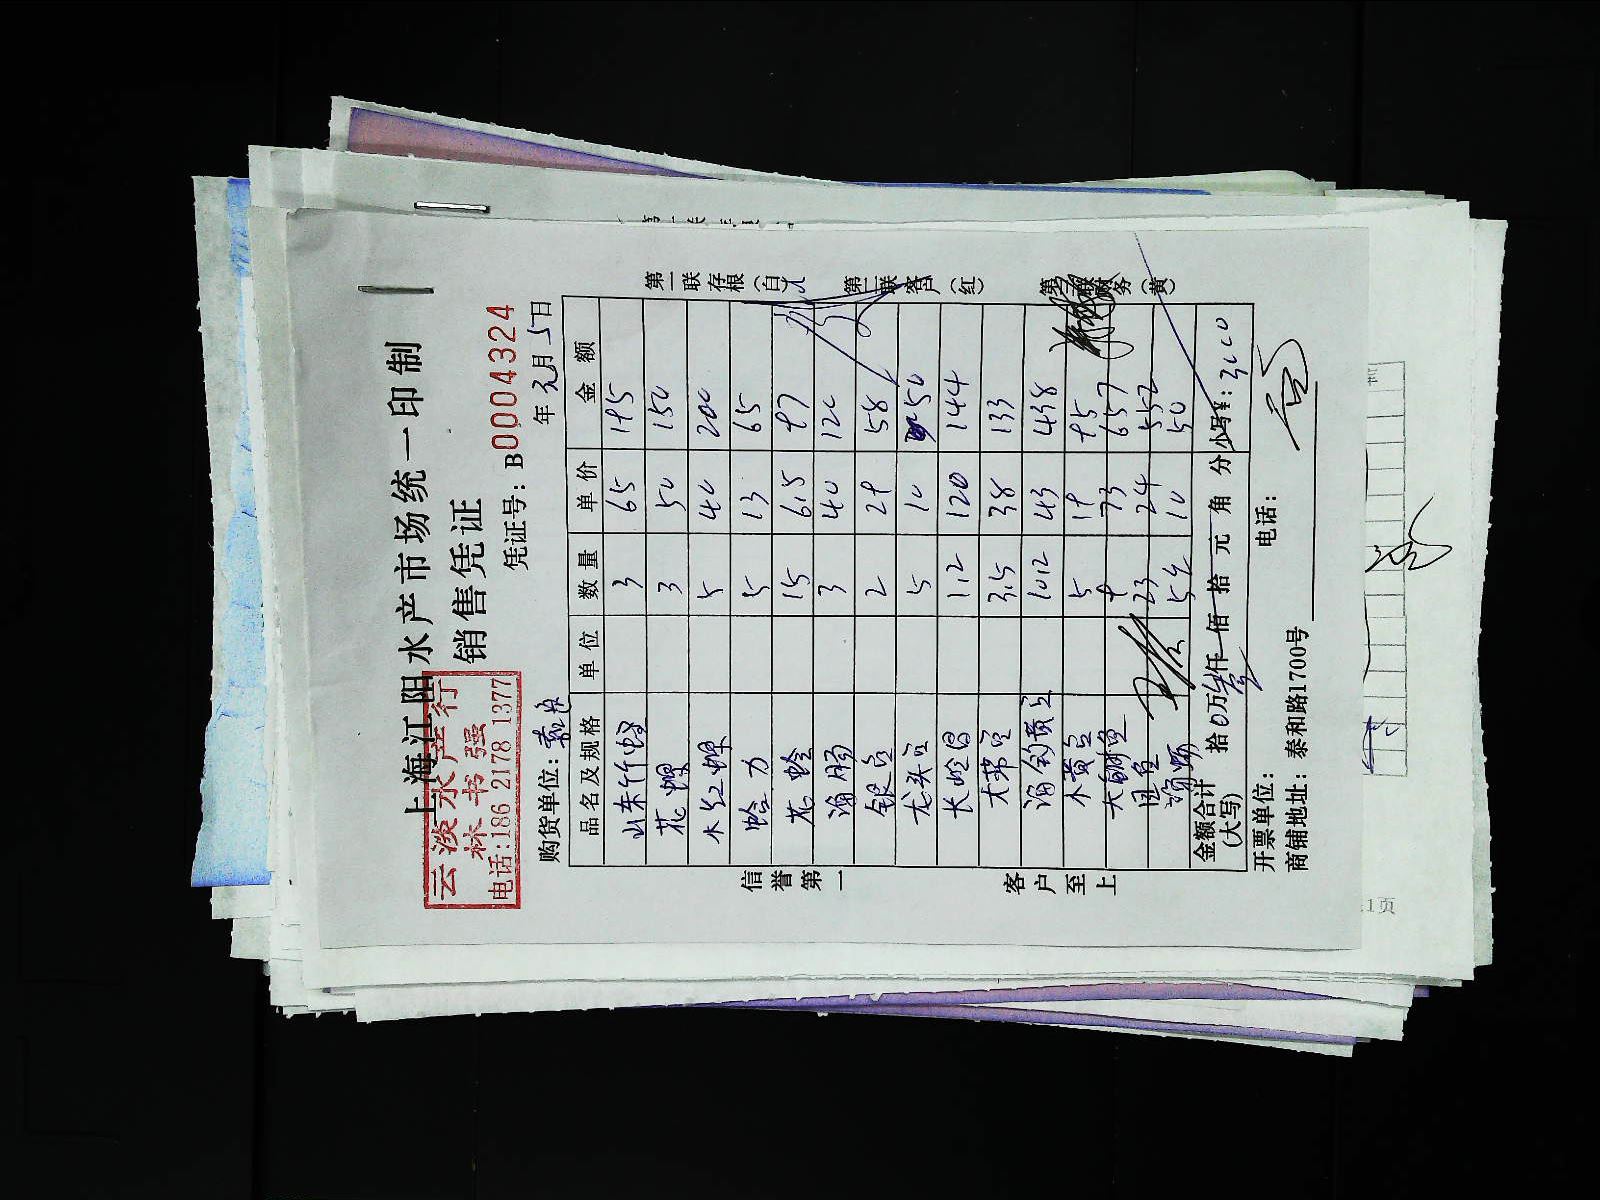 上海江阳水产市场统一印制
销售凭证
云淡水产行
林书强
电话:186 2178 1377
凭证号: B0004324
购货单位: 年 元月 5日
品名及规格 单位 数量 单价 金额
山东竹蛏 3 65 195
花螺 3 50 150
水红螺 5 40 200
蛤力 5 13 65
花蛤 15 6.5 97
海肠 3 40 120
银 2 29 58
龙头 5 10 50
长 1.2 120 144
大带 3.5 38 133
海钓黄 10.2 43 438
木黄鱼 5 19 95
大 鱼 9 73 657
23 24 552
5 10 50
金额合计(大写) 拾 0万 叁仟 佰 拾 元 角 分 小写¥: 3000
开票单位: 电话:
商铺地址: 泰和路1700号
信誉第一 客户至上
第一联存根(白)
第二联客户(红)
第三联财务(黄)
1页